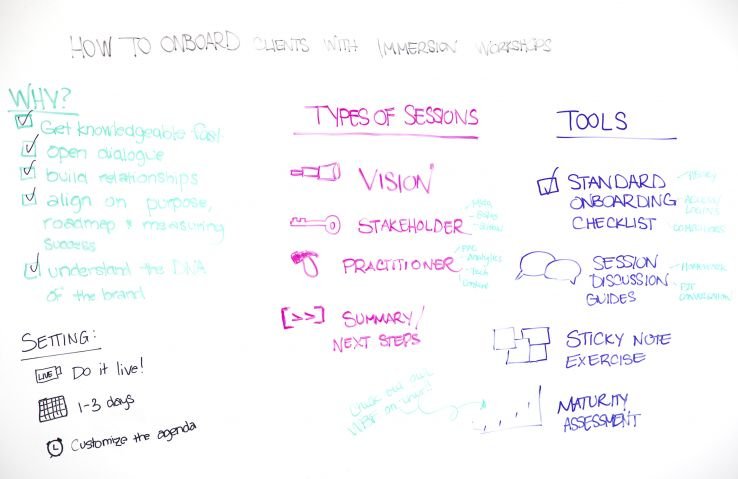 HOW TO ONBOARD CLIENTS WITH IMMERSION WORKSHOPS
WHY?
Get knowledgeable fast
open dialogue
build relationships
align on purpose,
roadmap & measuring
success
understand the DNA
of the brand
SETTING:
LIVE
Do it live!
1-3 days
Customize the agenda
TYPES OF SESSIONS
VISION
STAKEHOLDER
PRACTITIONER
Analytics
Tech
Content
[>>] SUMMARY/
NEXT STEPS
TOOLS
STANDARD
ONBOARDING
CHECKLIST
ACCESS/
LOGINS
COMPETITORS
SESSION
DISCUSSION
GUIDES
HOMEWORK
F2F
CONVERSATION
STICKY NOTE
EXERCISE
MATURITY
ASSESSMENT
check out our